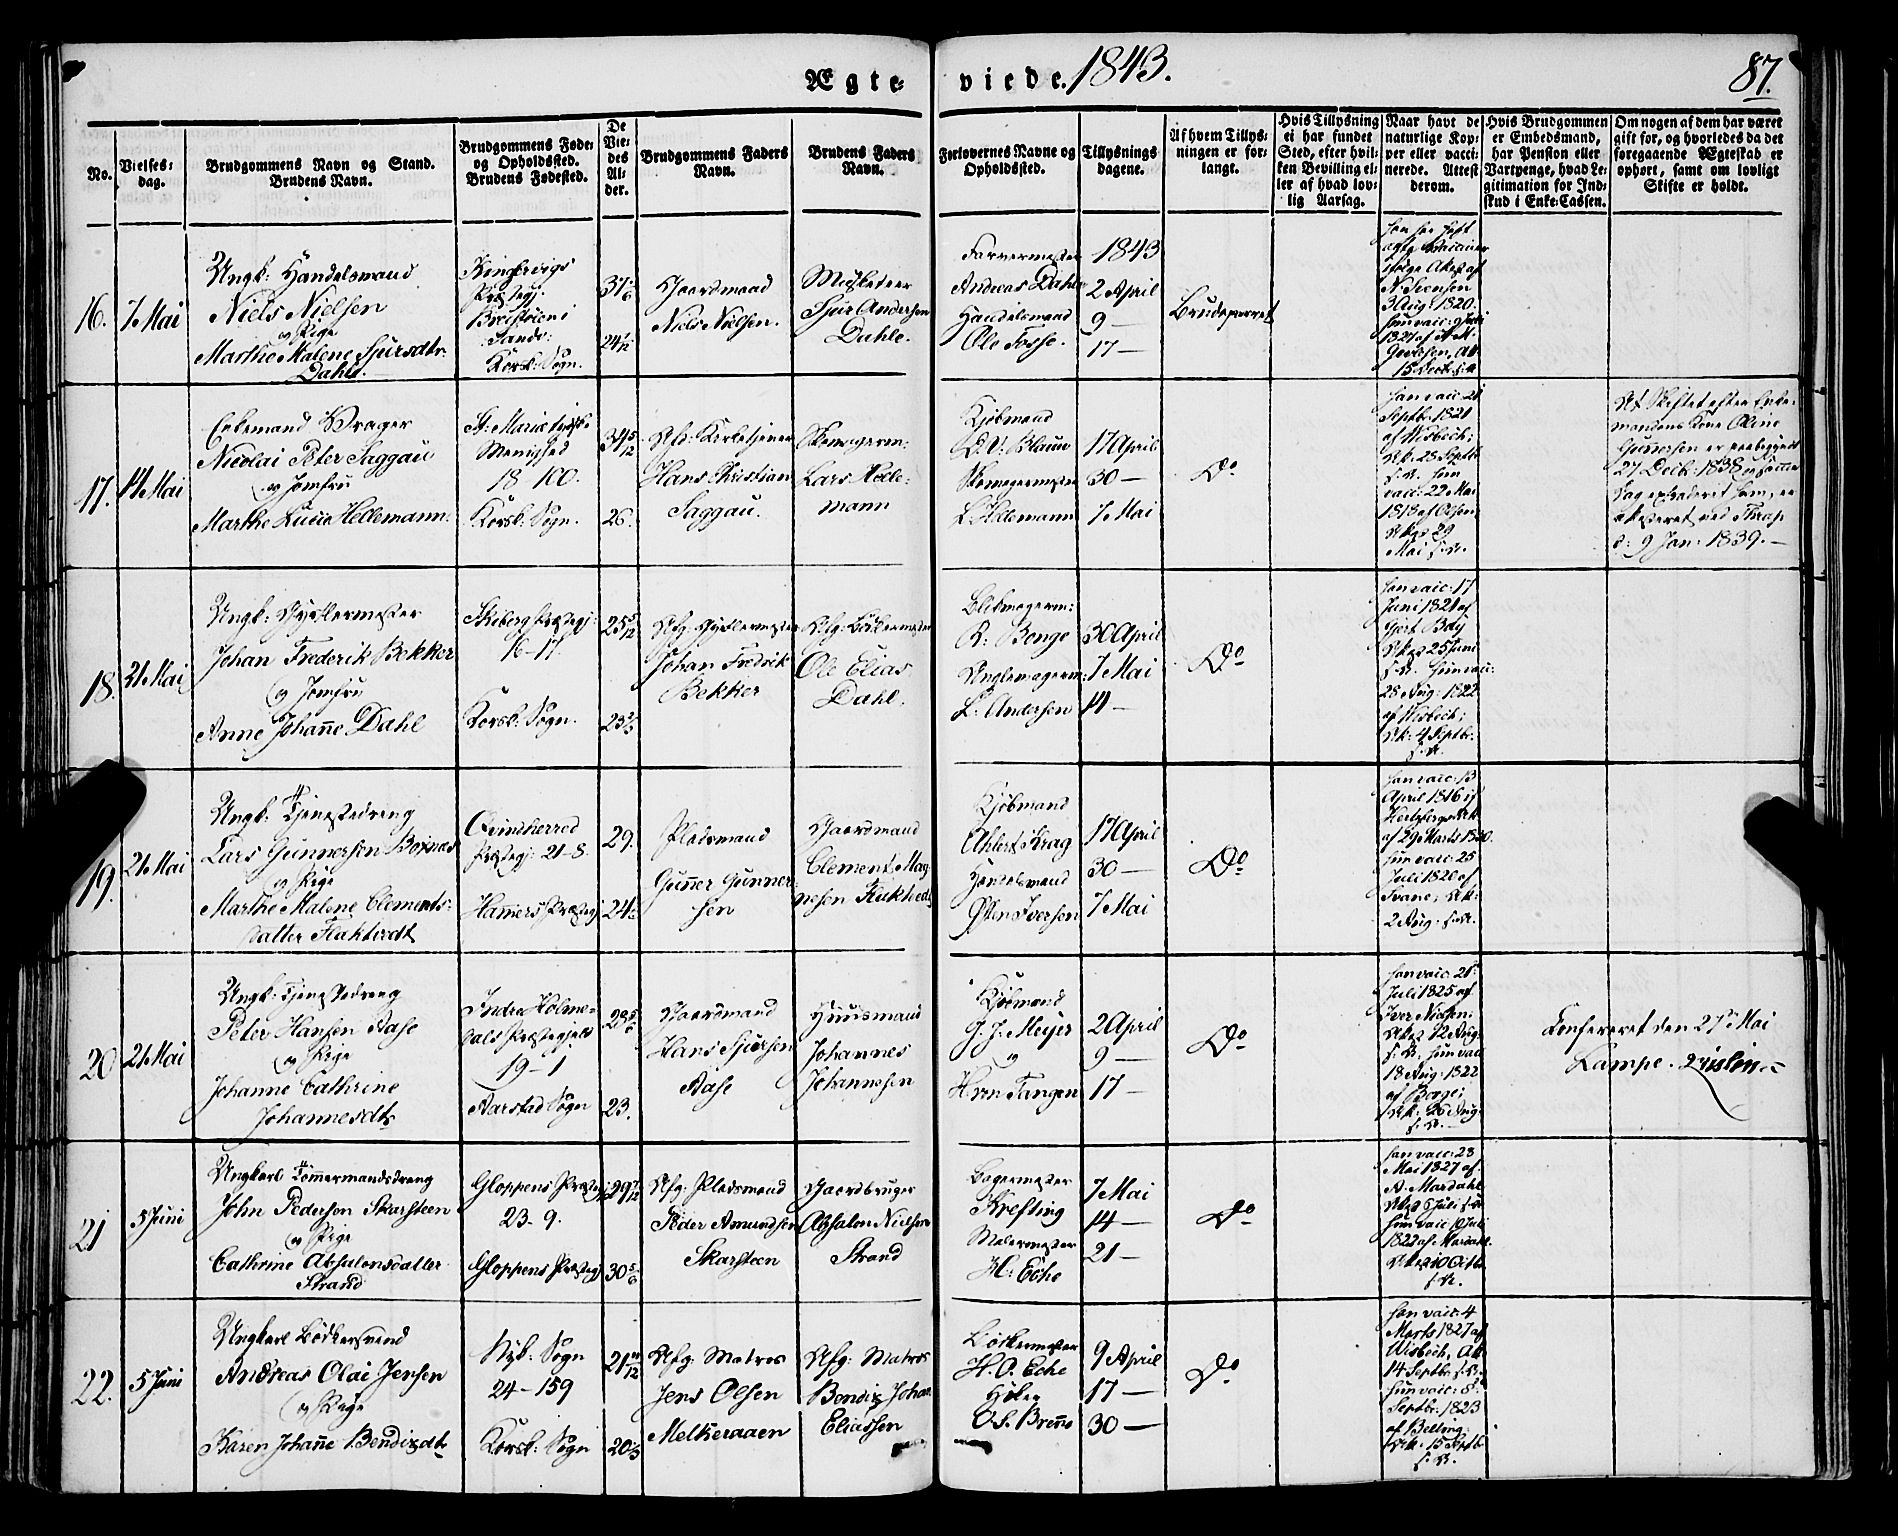 Ægte-
viede. 1843.
87.
No.
Vielses-
dag.
Brudgommens Navn og Stand.
Brudens Navn.
Brudgommens Føde-
og Opholdssted.
Brudens Fødested.
De
Vie-
des
Al-
der.
Brudgommens Faders
Navn.
Brudens Faders
Navn.
Forlovernes Navne og
Opholdssted.
Tillysnings
dagene.
Af hvem Tillys-
ningen er for-
langt.
Hvis Tillysning
ei har fundet
Sted, efter hvil-
ken Bevilling el-
ler af hvad lov-
lig Aarsag.
Naar havt de
naturlige Kop-
per eller vacci-
nerede. Attest
derom.
Hvis Brudgommen
er Embedsmand,
har Pension eller
Vartpenge, hvad Le-
gitimation for Ind-
skud i Enke-Cassen.
Om nogen af dem har været
gift før, og hvorledes da det
foregaaende Ægteskab er
ophørt, samt om lovligt
Skifte er holdt.
16.
7 Mai
Ungk: Handelsmand
Niels Nielsen
og Pige
Marthe Malene Sjursdtr.
Dahle.
Kinservigs
Præstegj:
Korsk: Sogn.
Gaardmand
Niels Nielsen.
Musketeer
Sjur Andersen
Dahle.
Farvermester
Andreas Dahle
Handelsmand
Ole Fosse.
1843
2 April
9 —
17 —
Brudeparret
3 Aug: 1820.
17.
14 Mai
Enkemand Vrager
Nicolai Peter Saggau
og Jomfru
Marthe Lucie Hellemann.
St: Mariæ tydske
Menighed
18-100.
Korsk: Sogn.
34 5/12
26.
Afg: Kirketjener
Hans Christian
Saggau.
Skomagerm:
Lars Helle-
mann
Kjøbmand
D. V. Blauw
Skomagermester
L. Hellemann
17 April
30 —
7 Mai
Do
han vacc: 21
Septbr: 1821
af Wisbech;
hun
vacc: 22 Mai
1818 af Olsen,
Mai s. A.
At Skiftet efter Enke-
mandens Kone Oline
Gunnersen er paabegyndt
27 Decb: 1838
d: 9 Jan: 1839.—
18.
21 Mai
Ungk: Gjørtlermester
Johan Frederik Bekker
og Jomfru
Anne Johanne Dahl
Skiberg Præstegj:
16-17
Korsk: Sogn.
25 5/12
23 2/3
Afg: Gjørtlermester
Johan Fredrik
Bekker
Afg: Bødkermester
Ole Elias
Dahl.
Blikmagerm:
R. Bonge
L. Andersen
30 April
7 Mai
14 —
Do
han vacc: 17
Juni 1821 af
Gjert Bøy
Attest 25 Juni
s. A. hun vacc:
28 Aug: 1822
af Wisbech;
Att: 4 Septbr.
s. A.
19.
21 Mai
Ungk: Tjenestedreng
Lars Gunnersen Boxnæs
og Pige
Marthe Malene Clements-
datter Flaktvedt
Qvindherred
Præstegj: 21-8.
Hammers Præstegj:
29.
Pladsmand
Gunner Gunner-
sen
Gaardmand
Clement Mag-
nesen Flaktvedt
Kjøbmand
Ahlert Krag
Handelsmand
Østen Iversen
17 April
30 —
7 Mai
Do
han vacc: 13
April 1816 af
Hertzberg
af 29 Marts 1820.
hun vacc: 25
Juli 1820 af
Svane; Att:
2 Aug: s. A.
20
21 Mai
Ungk: Tjenestedreng
Peter Hansen Aase
og Pige
Johanne Cathrine
Johannesdtr
Indre Holme-
dals Præstegjeld
19-1
Aarstad Sogn
28 5/6
23.
Gaardmand
Hans Sjursen
Aase
Huusmand
Johannes
Johannesen
Kjøbmand
J. J. Meyer
og
Hrn Tangen
2 April
9 —
17 —
Do
han vacc: 21
Juli 1825 af
Iver Nielsen;
Attest 12 Aug:
s. A. hun vacc:
18 Aug: 1822
af Borge;
Att: 26 Aug:
s. A.
Confereret den 27de Mai
Lampe.
21
5 Juni
Ungkarl Tømmermandsdreng
John Pederson Skarsteen
og Pige
Cathrine Absalonsdatter
Strand
Gloppens Præstegj
23-9.
Gloppens Præstegj
29 7/12
30 5/6
Afg: Pladsmand
Peder Amundsen
Skarsteen
Gaardbruger
Absalon Nielsen
Strand
Bagermester
Krefting
Malermester
H. Eche
7 Mai
14 —
21 —
Do
han vacc: 23
Mai 1827 af
A. Mardahl
Attest 6 Juli s. A.
hun vacc 10 Juli
1822 af Mardahl
Attest 10 Octb
s. A.
22.
5 Juni
Ungkarl Bødkersvend
Andreas Olai Jensen
og Pige
Karen Johanne Bendixdtr
Nyk: Sogn
24-159
Korsk: Sogn
21 11/12
20 1/3
Afg: Matros
Jens Olsen
Melkeraaen
Afg: Matros
Bendix Johan
Eliassen
Bødkermester
H. O. Eche
Høker
O. S. Brenne
9 April
17 —
30 —
Do
han vacc: 4
Marts 1827 af
Wisbech, Att:
14 Septbr: s. A.
hun vacc: 8
Septbr: 1823
af Belling;
Att: 15 Septb
s. A.